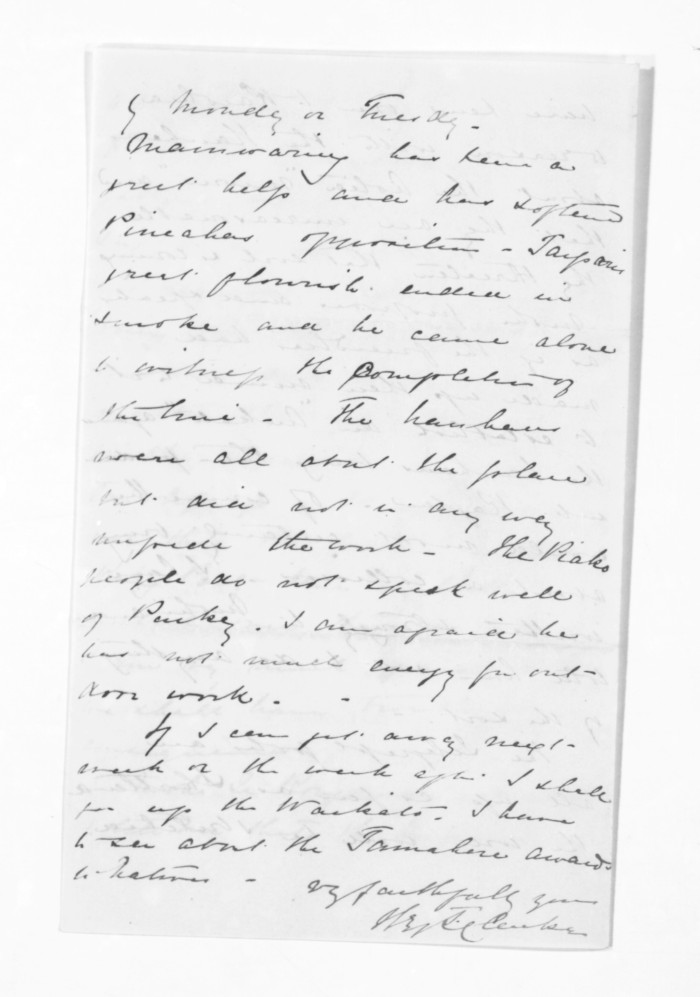 by Monday or Tuesday -
Mainwaring has been a
great help and has softened
Pineahas opposition - Taipari's
great flourish ended in
smoke and he came alone
to witness the completion of
the line - The hauhaus
were all about the place
but did not in any way
impede the work - The Piako
people do not speak well
of Puckey. I am afraid he
has not much energy for out-
door work - -
If I can get away next-
week or the week after I shall
go up the Waikato. I have
to see about the Tamahere awards
to natives -
vy faithfully yours
H. T. Clarke